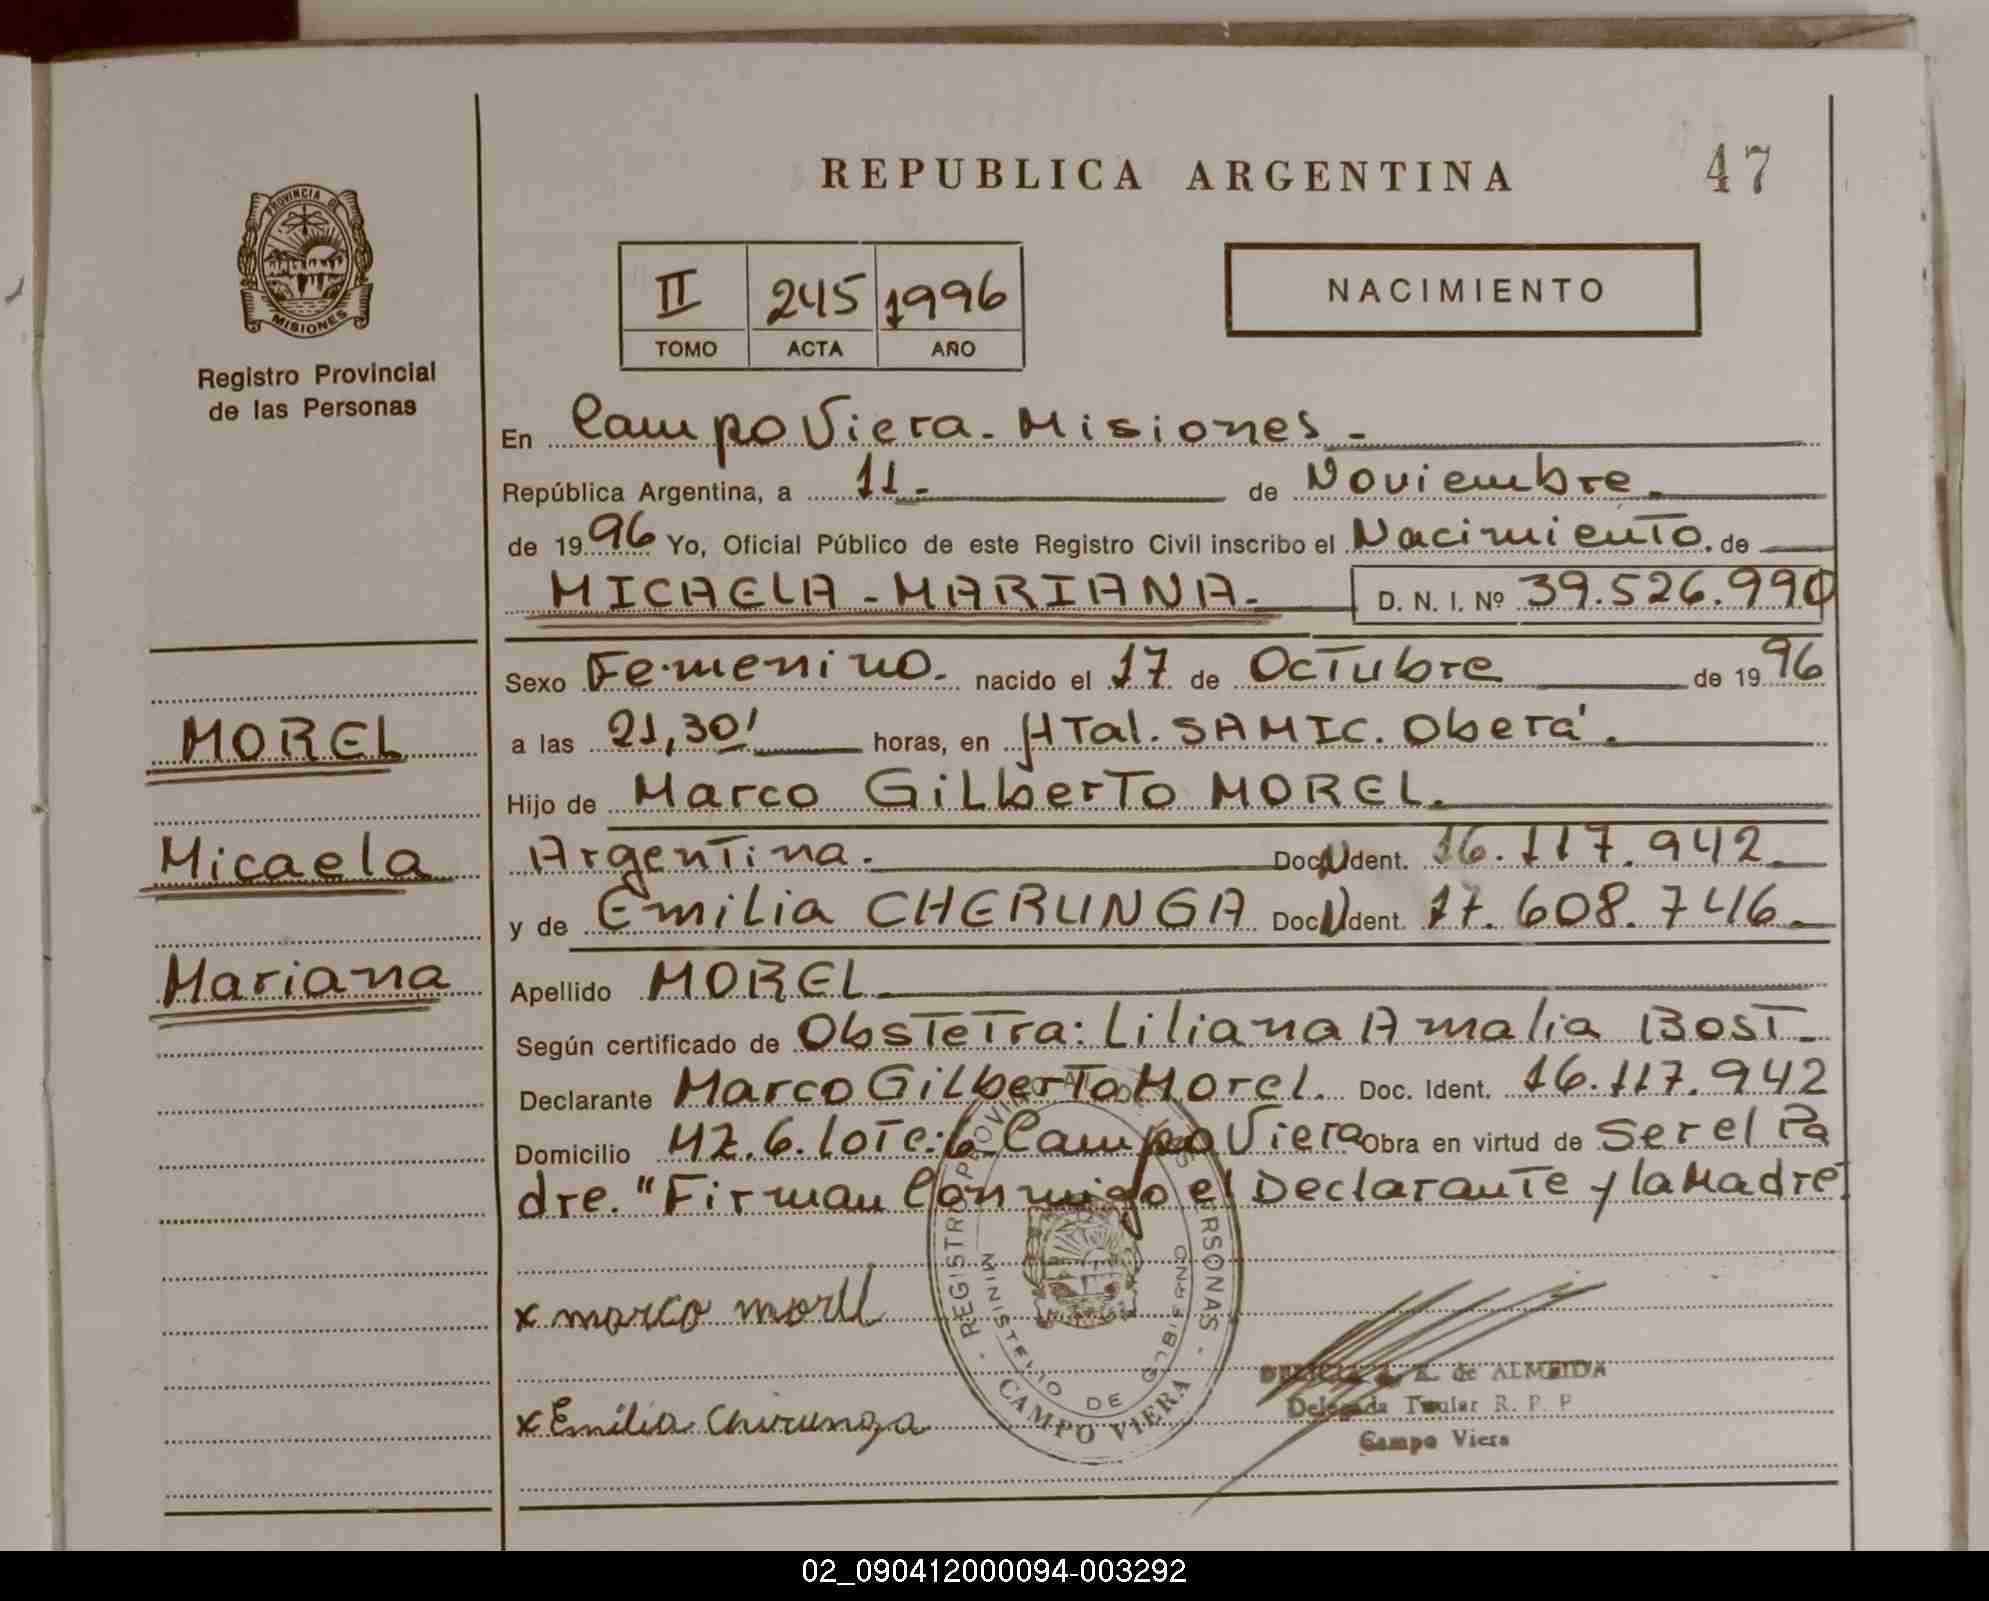 REPUBLICA ARGENTINA
47
PROVINCIA DE
MISIONES
Registro Provincial
de las Personas
II 245 1996
TOMO ACTA AÑO
NACIMIENTO
En Campo Viera - Misiones -
República Argentina, a 11.- de Noviembre.
de 1996 Yo, Oficial Público de este Registro Civil inscribo el Nacimiento. de
MICAELA - MARIANA.- D. N. I. Nº 39.526.990
Sexo Femenino. nacido el 17 de Octubre de 1996
a las 21,30' horas, en HTal. SAMIC. Oberá.
Hijo de Marco Gilberto MOREL.
Argentina. Doc. N Ident. 16.117.942.
y de Emilia CHERUNGA Doc. N Ident. 17.608.746.
Apellido MOREL
Según certificado de Obstetra: Liliana Amalia BOST.
Declarante Marco Gilberto Morel. Doc. Ident. 16.117.942
Domicilio MZ.6.Lote:6 Campo Viera Obra en virtud de Ser el Pa
dre. "Firman Conmigo el Declarante y la Madre.
MOREL
Micaela
Mariana
x marco morel
x Emilia Cherunga
REGISTRO PROVINCIAL DE LAS PERSONAS
MINISTERIO DE GOBIERNO
CAMPO VIERA
de ALMEIDA
Delegada Titular R. P. P
Campo Viera
02_090412000094-003292